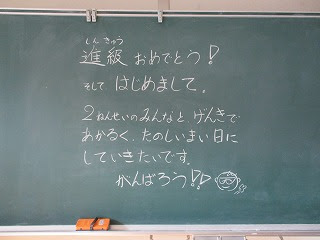 しんきゅう
進級 おめでとう!
そして はじめまして。
2ねんせいのみんなと、げんきで
あかるく、たのしいまい日に
していきたいです。
がんばろう!!